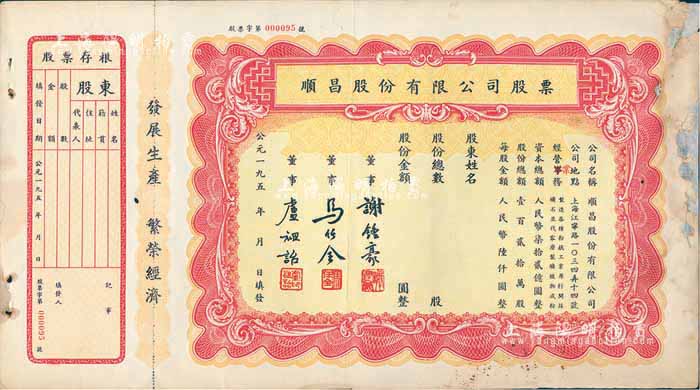 股票字第 000095 號
順昌股份有限公司股票
公司名稱 順昌股份有限公司
公司地點 上海江寧路一〇三四弄十四號
經營業務
資本總額 人民幣柒拾貳億圓整
股份總額 壹百貳拾萬股
每股金額 人民幣陸仟圓整
股東姓名
股份總數 股
股份金額 圓整
董事
董事
董事
公元一九五 年 月 日填發
發展生產 繁榮經濟
股票存根
股東
姓名
籍貫
住址
代表人
股數
金額
填發日期
公元一九五 年 月 日
記事
填發人
股票字第 000095 號